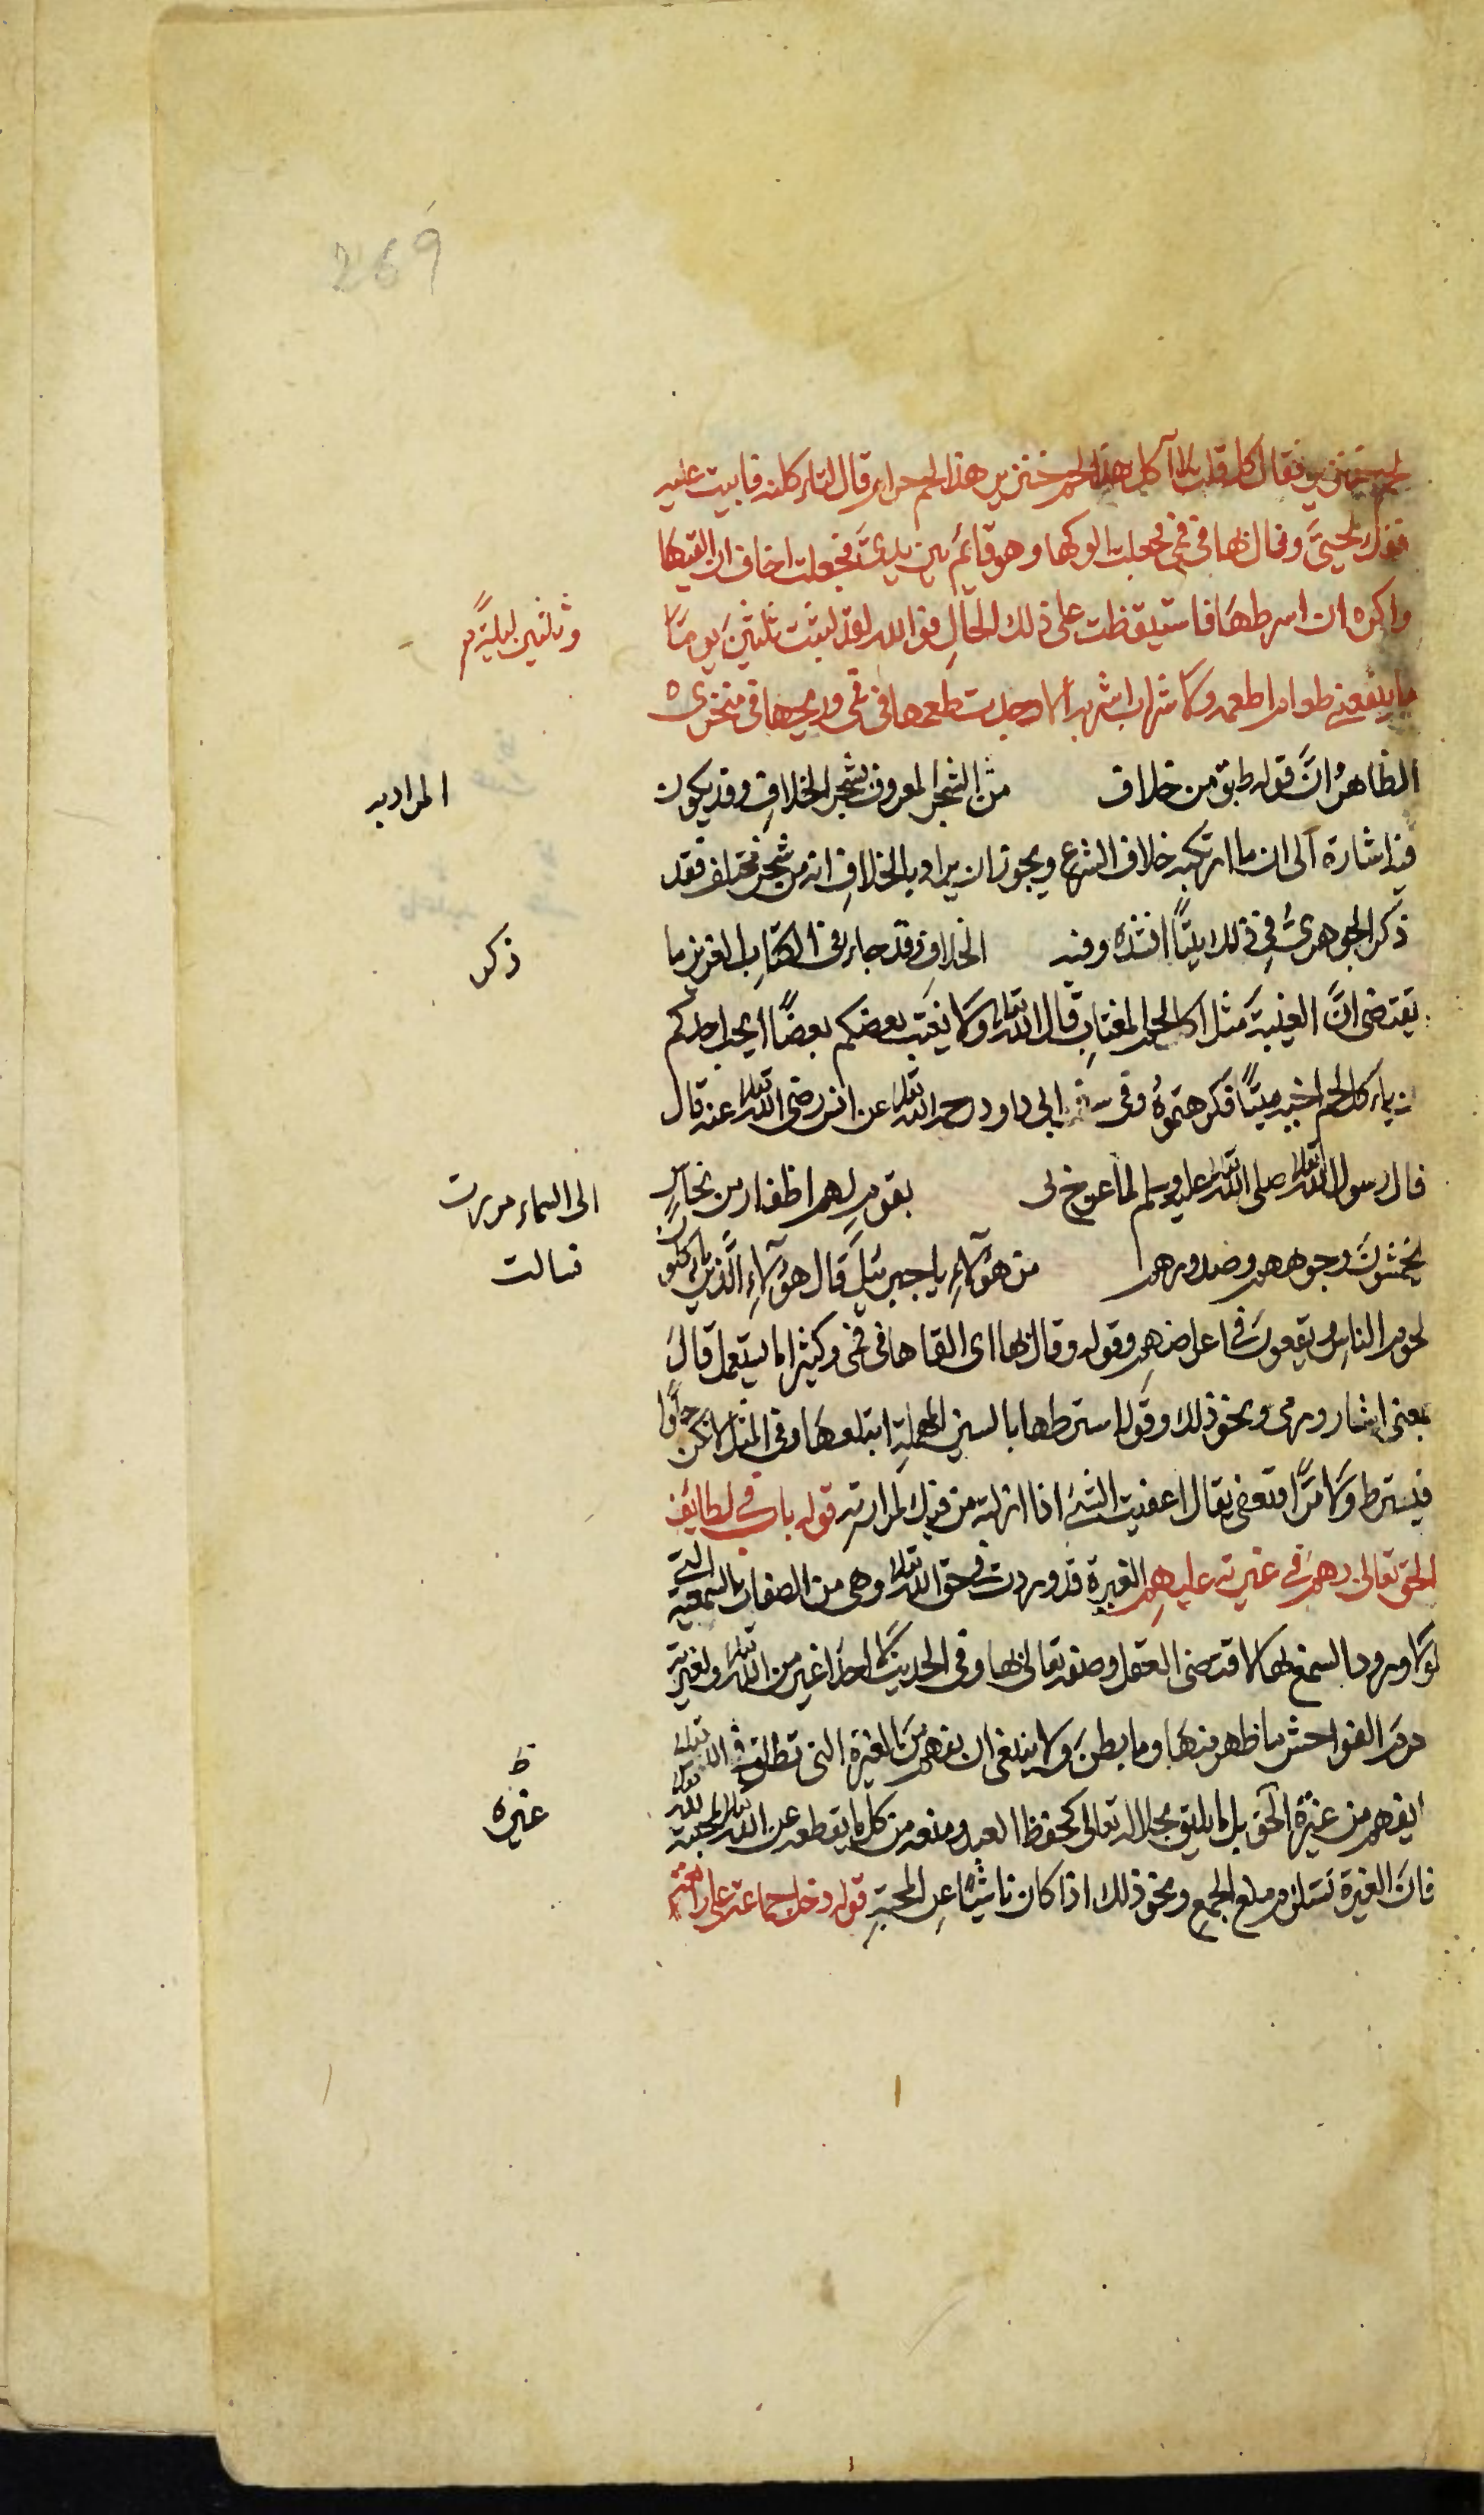 269
لحم خنزير فقال كل قلت لا آكل هذا لحم خنزير هذا لحم حرام قال لتاءكلنه فابيت عليه
ففك لحيىَّ وقال بها فى فمى فجعلت الوكها وهو قايم بين يدىَّ فجعلت اخاف ان القيها
واكره ان اسرطها فاستيقظت على ذلك الحال فوالله لقد لبثت ثلثين يومًا
وثلثين ليلةً
ما ينفعنى طعام اطعمه ولا شراب اشربه الا وجدت طعمها فى فمى وريحها فى منخرى
الظاهرُ انَّ قوله طبق من خلاف من الشجر المعروف بشجر الخلاف وقد يكون
المراد به
فيه اشارة الى ان ما ارتكبه خلاف الشرع ويجوز ان يراد بالخلاف انه من شجر مختلف فقد
ذكر الجوهرىُّ فى ذلك بيتًا انشده وفيه الخلاف وقد جاء فى الكتاب العزيز ما
ذكر
يقتضى انَّ الغيبة مثل اكل لحم المغتاب قال الله تعالى ولا يغتب بعضكم بعضًا ايحب احدكم
ان ياءكل لحم اخيه ميتًا فكرهتموُهُ وفى سنن ابى داود رحمه الله تعالى عن انس رضى الله تعالى عنه قال
قال رسول الله تعالى صلى الله تعالى عليه وسلم لما عرج بى بقوم لهم اظفار من نحاسٍ
الى السماء مررت
يخمشون وجوههم وصدورهم من هؤلاءِ يا جبرئيل قال هؤلاءِ الَّذين ياءكلون
فسالت
لحوم الناس ويقعون فى اعراضهم وقوله وقال بها اى القاها فى فمى وكثيرا ما يستعمل قال
بمعنى اشار ورمى ونحو ذلك وقوله استرطها بالسين المهملة ابتلعها وفى المثل لا تكن حلوًا
فتسترط ولا مرًّا فتعفى يقال اعفيت الشئ اذا ازلته من فيك لمرارته قوله باب فى لطايف
الحق تعالى بهم فى غيرته عليهم الغيرة قد وردت فى حق الله تعالى وهى من الصفات السمعية التى
لولا ورود السمع بها لما اقتضى العقل وصفه تعالى بها وفى الحديث لا احدَ اغير من الله تعالى ولغيرته
حرم الفواحش ما ظهر منها وما بطن ولا ينبغى ان يفهم من الغيرة التى تطلق فى الله تعالى
يفهم من غيرة الحق بل ما يليق بجلاله تعالى كحفظ العبد ومنعه من كل ما يقطعه عن الله تعالى لمحبته لله تعالى
غيره
ظ
فان الغيرة تستلزم منع الجميع ونحو ذلك اذا كان ناشئًا عن المحبة قوله دخل جماعة على رابعة